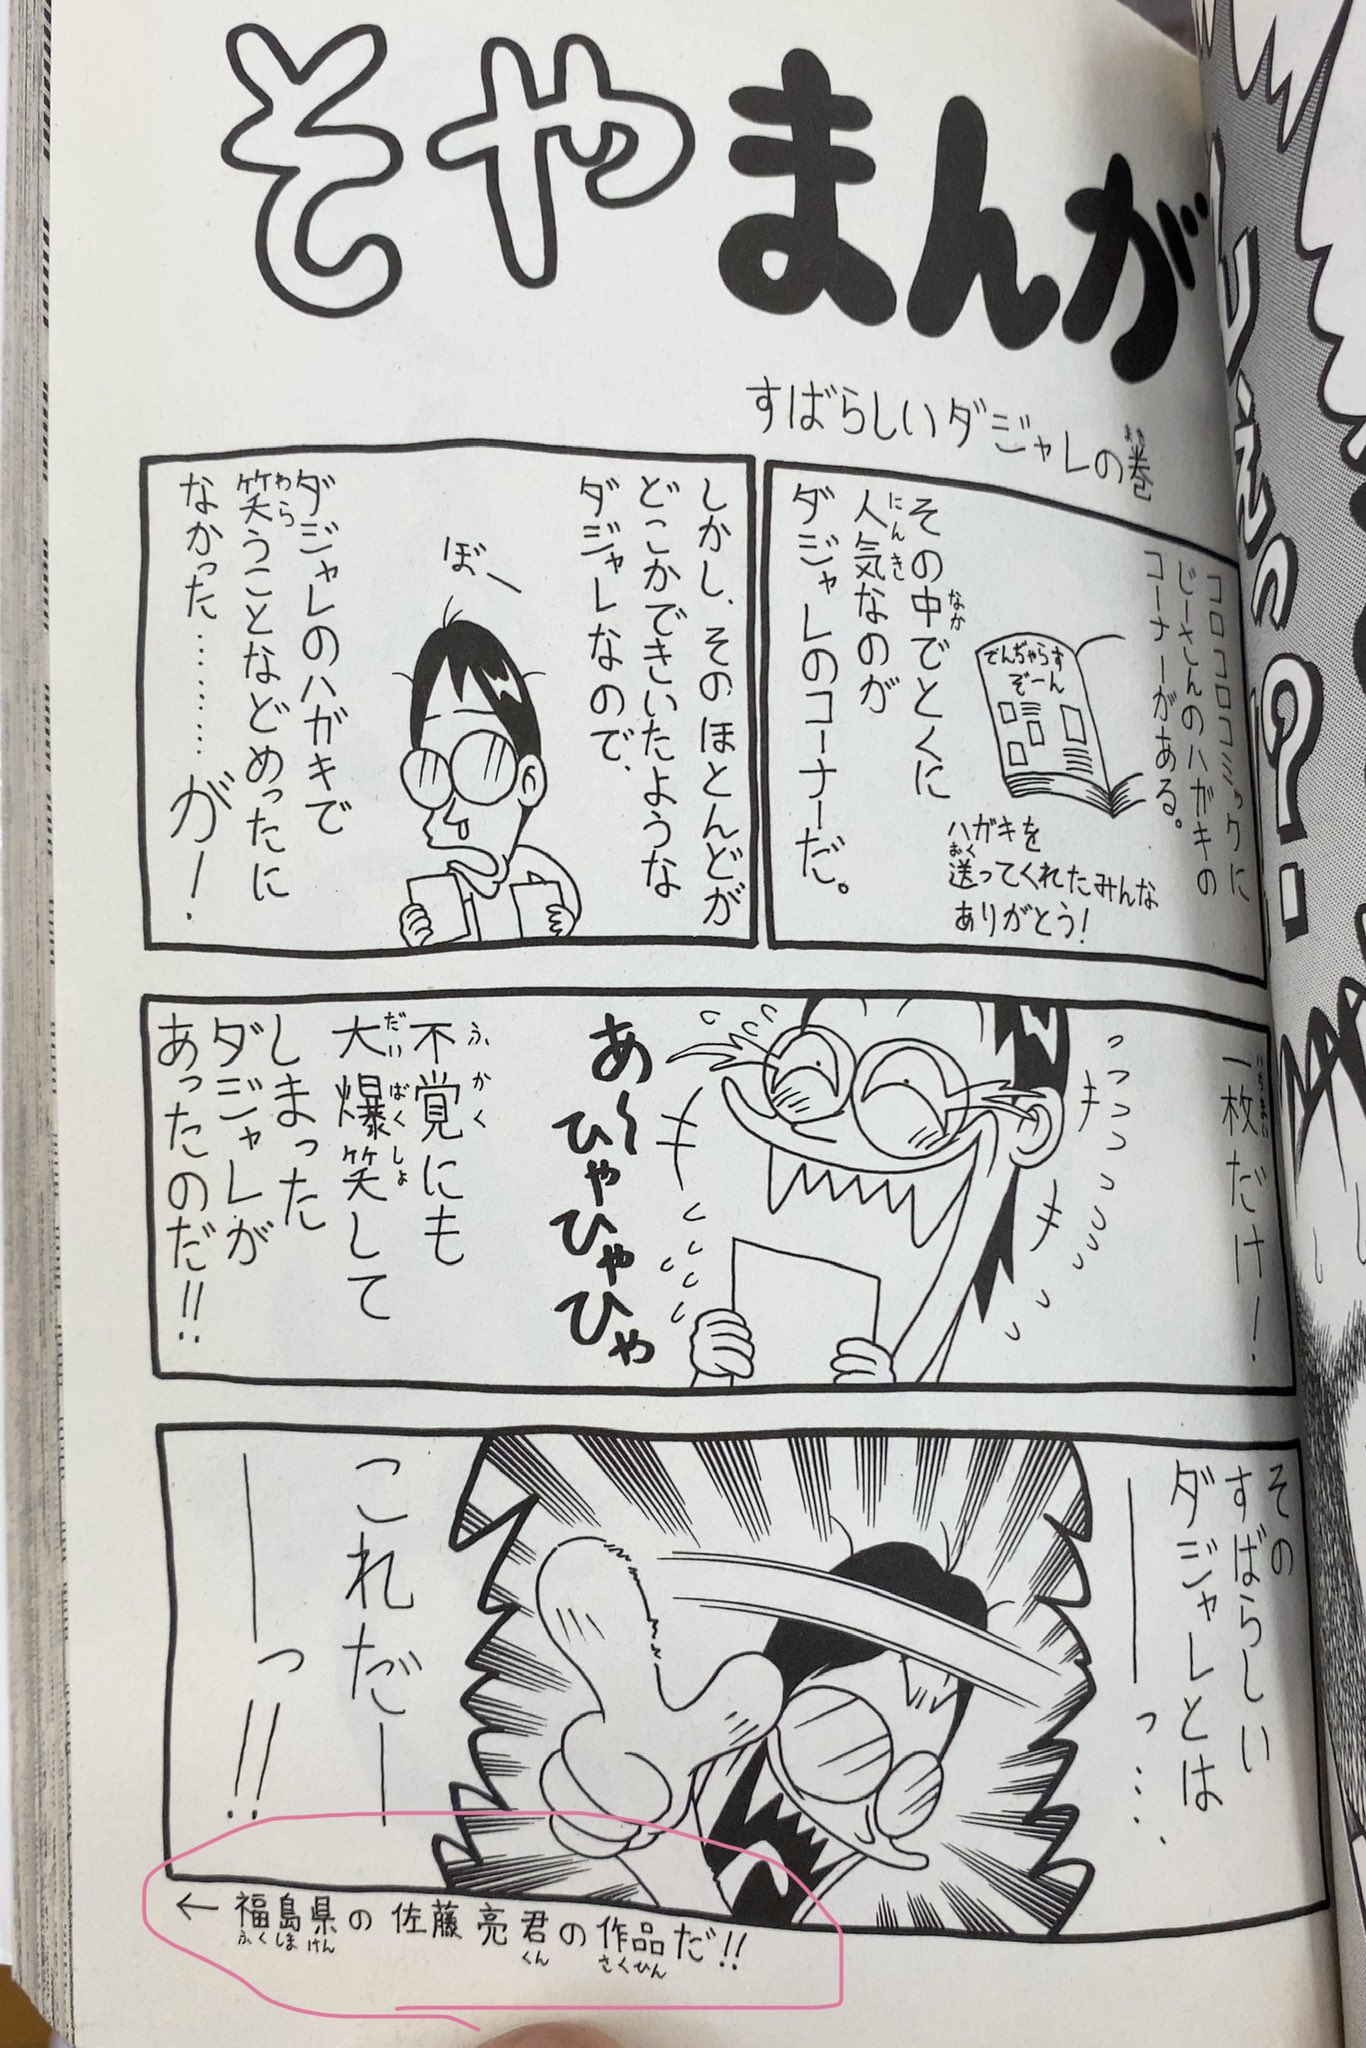 そやまんが
すばらしいダジャレの巻
まき
コロコロコミックに
じーさんのハガキの
コーナーがある。
でんぢゃらす
ぞーん
ハガキを
送ってくれたみんな
おく
ありがとう!
その中でとくに
なか
人気なのが
にんき
ダジャレのコーナーだ。
しかし、そのほとんどが
どこかできいたような
ダジャレなので、
ぼー
ダジャレのハガキで
笑うことなどめったに
わら
なかった………が!
一枚だけ!
いちまい
あ〜ひゃひゃひゃ
不覚にも
ふかく
大爆笑して
だいばくしょ
しまった
ダジャレが
あったのだ!!
その
すばらしい
ダジャレとは
――っ…
これだ――
――っ!!
←福島県の佐藤亮君の作品だ!!
ふくしまけん くん さくひん